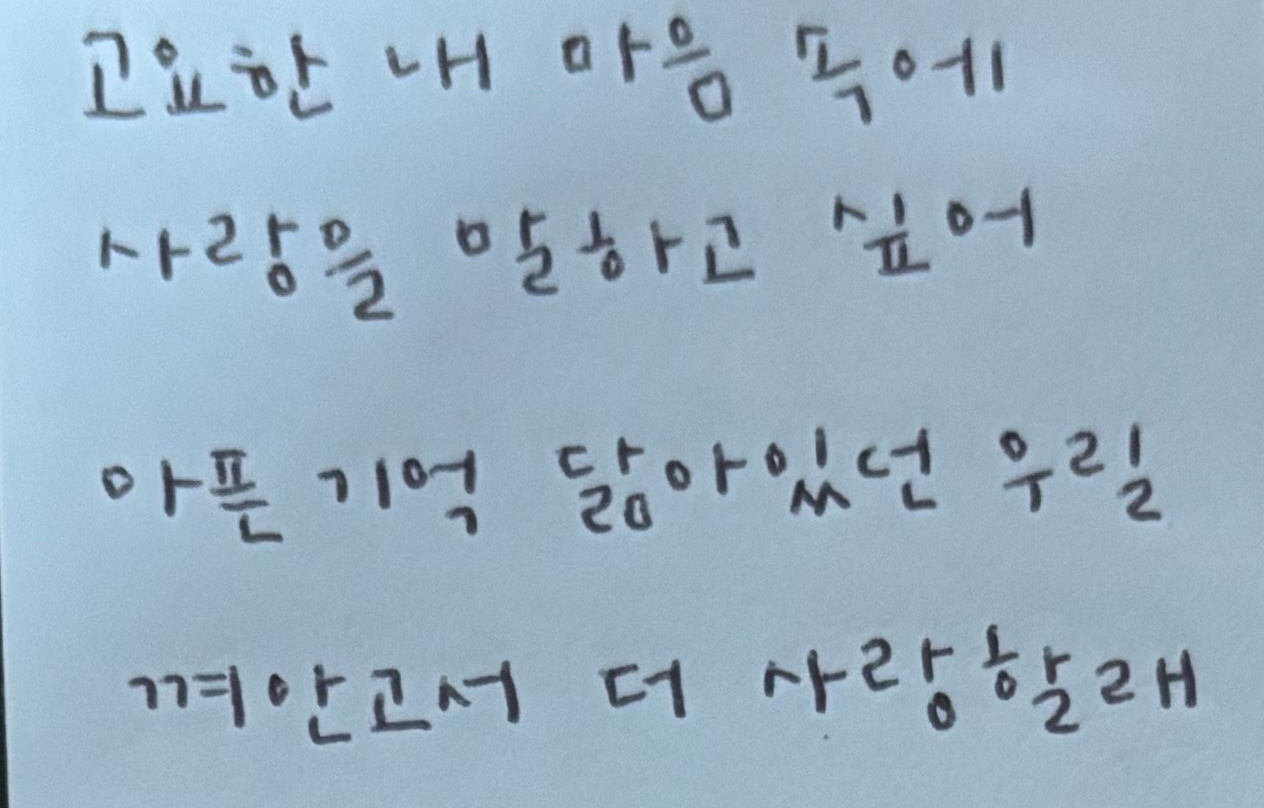 고요한 내 마음 속에
사랑을 말하고 싶어
아픈 기억 닮아있던 우릴
껴안고서 더 사랑할래